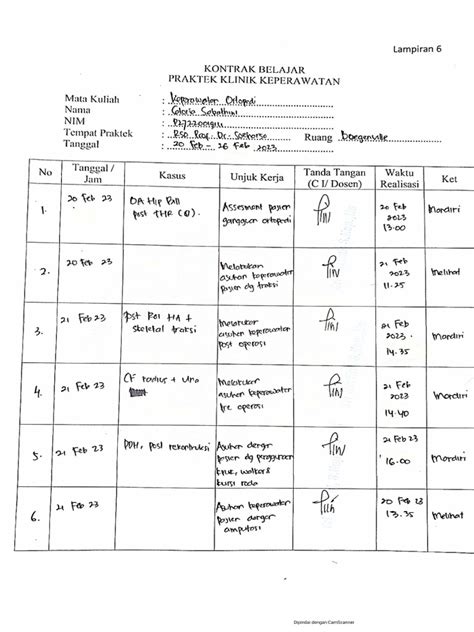 Lampiran 6
KONTRAK BELAJAR
PRAKTEK KLINIK KEPERAWATAN
Mata Kuliah : Keperawatan Ortopedi
Nama : Gloria
NIM :
Tempat Praktek : RSO Prof. Dr. Soeharso Ruang
Tanggal : 20 Feb - 26 Feb 2023
No Tanggal / Jam Kasus Unjuk Kerja Tanda Tangan (C I/ Dosen) Waktu Realisasi Ket
1. 20 Feb 23 OA Hip post THR Assesment pasien gangguan ortopedi 20 Feb 2023 13.00 Mandiri
2. 20 Feb 23 Melakukan asuhan keperawatan pasien dg traksi 21 Feb 2023 11.25 Melihat
3. 21 Feb 23 post skeletal traksi Melakukan asuhan keperawatan post operasi 21 Feb 2023 14.35 Mandiri
4. 21 Feb 23 CF radius + Melakukan asuhan keperawatan pre operasi 21 Feb 2023 14.40 Mandiri
5. 21 Feb 23 DDH, post rekontruksi Asuhan dengan pasien dg penggunaan kruk, walker & kursi roda 21 Feb 2023 16.00 Mandiri
6. 21 Feb 23 Asuhan keperawatan pasien dengan amputasi 20 Feb 2023 13.35 Melihat
Dipindai dengan CamScanner